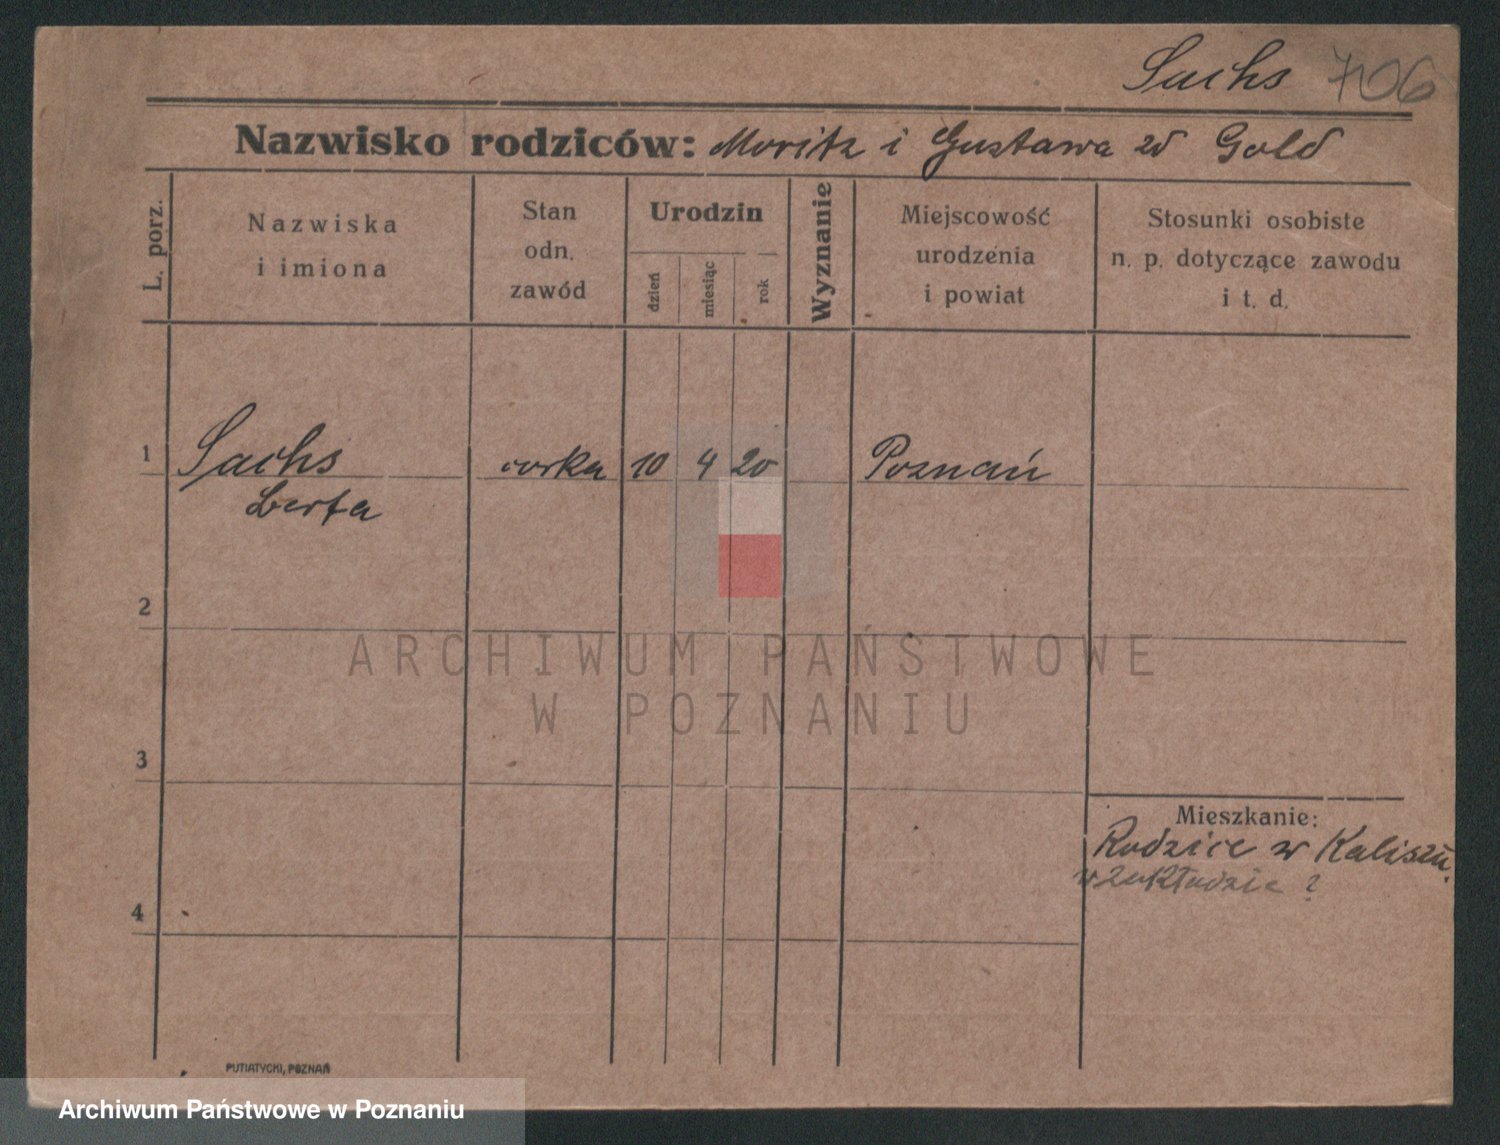 Sachs 706
Nazwisko rodziców: Moritz i Gustawa zd Gold
L. porz.
Nazwiska
i imiona
Stan
odn.
zawód
Urodzin
dzień
miesiąc
rok
Wyznanie
Miejscowość
urodzenia
i powiat
Stosunki osobiste
n. p. dotyczące zawodu
i t. d.
1 Sachs córka 10 4 20 Poznań
Berta
2
ARCHIWUM PAŃSTWOWE
W POZNANIU
3
Mieszkanie:
Rodzice w Kaliszu.
w zakładzie ?
4
PUTIATYCKI, POZNAŃ
Archiwum Państwowe w Poznaniu